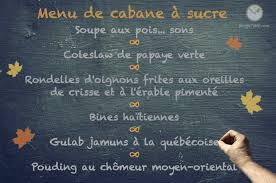 Menu de cabane à sucre
Soupe aux pois... sons
Coleslaw de papaye verte
Rondelles d'oignons frites aux oreilles
de crisse et à l'érable pimenté
Bines haïtiennes
Gulab jamuns à la québécoise
Pouding au chômeur moyen-oriental